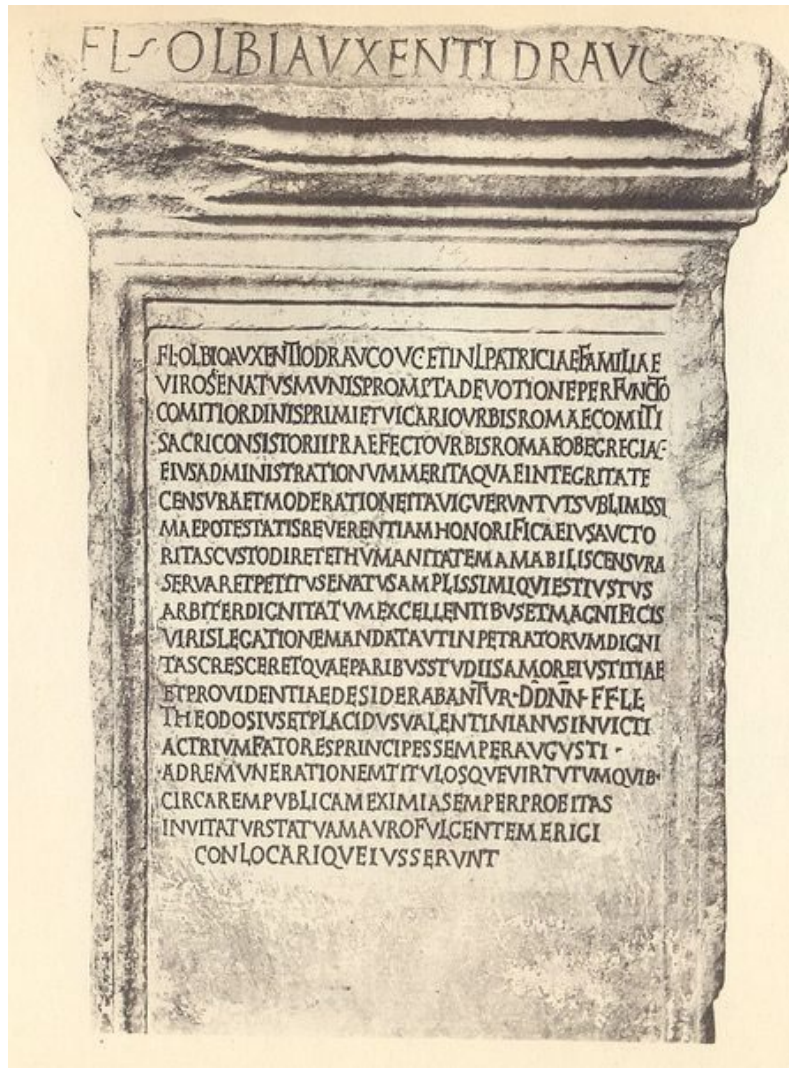 FL OLBI AVXENTI DRAVC
FL·OLBIO AVXENTIO DRAVCO V C ET INL PATRICIAE FAMILIAE
VIRO SENATVS MVNIS PROMPTA DEVOTIONE PERFVNCTO
COMITI ORDINIS PRIMI ET VICARIO VRBIS ROMAE COMITI
SACRI CONSISTORII PRAEFECTO VRBIS ROMAE OB EGREGIAE
EIVS ADMINISTRATIONVM MERITA QVAE INTEGRITATE
CENSVRA ET MODERATIONE ITA VIGVERVNT VT SVBLIMISSI
MAE POTESTATIS REVERENTIAM HONORIFICA EIVS AVCTO
RITAS CVSTODIRET ET HVMANITATEM AMABILIS CENSVRA
SERVARET PETITV SENATVS AMPLISSIMI QVI EST IVSTVS
ARBITER DIGNITATVM EXCELLENTIBVS ET MAGNIFICIS
VIRIS LEGATIONE MANDATA VT INPETRATORVM DIGNI
TAS CRESCERET QVAE PARIBVS STVDIIS AMORE IVSTITIAE
ET PROVIDENTIAE DESIDERABANTVR·DD NN·FF LL
THEODOSIVS ET PLACIDVS VALENTINIANVS INVICTI
AC TRIVMFATORES PRINCIPES SEMPER AVGVSTI·
·AD REMVNERATIONEM TITVLOSQVE VIRTVTVM QVIB·
CIRCA REM PVBLICAM EXIMIA SEMPER PROBITAS
INVITATVR STATVAM AVRO FVLGENTEM ERIGI
CONLOCARIQVE IVSSERVNT